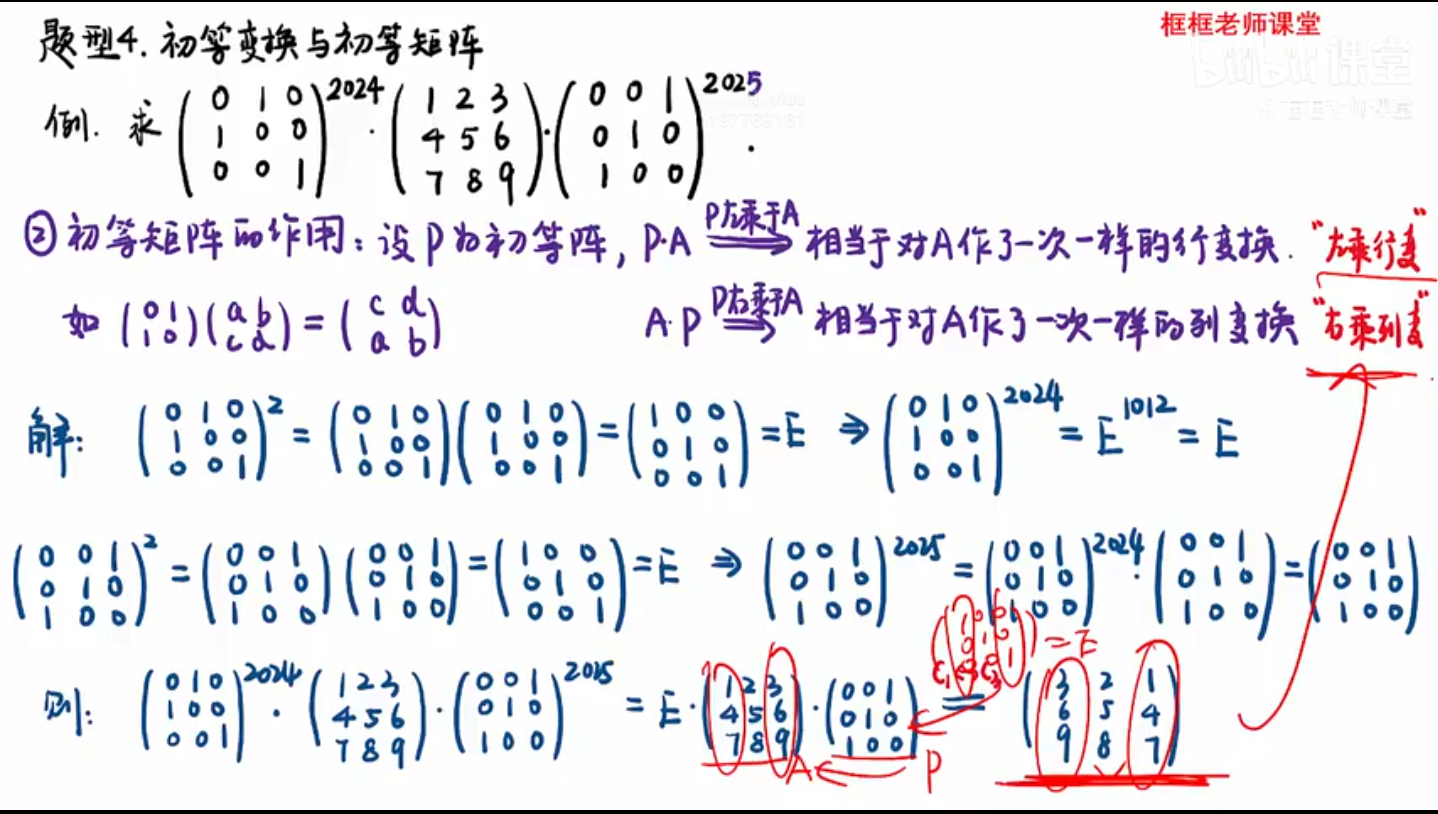 框框老师课堂
bilibili 课堂
题型4. 初等变换与初等矩阵
例. 求 (0 1 0; 1 0 0; 0 0 1)^2024 · (1 2 3; 4 5 6; 7 8 9) · (0 0 1; 0 1 0; 1 0 0)^2025 .
② 初等矩阵的作用：设P为初等阵， P·A ⟹(P左乘于A) 相当于对A作了一次一样的行变换. “左乘行变”
如 (0 1; 1 0)(a b; c d) = (c d; a b) A·P ⟹(P右乘于A) 相当于对A作了一次一样的列变换 “右乘列变”
解: (0 1 0; 1 0 0; 0 0 1)^2 = (0 1 0; 1 0 0; 0 0 1)(0 1 0; 1 0 0; 0 0 1) = (1 0 0; 0 1 0; 0 0 1) = E ⇒ (0 1 0; 1 0 0; 0 0 1)^2024 = E^1012 = E
(0 0 1; 0 1 0; 1 0 0)^2 = (0 0 1; 0 1 0; 1 0 0)(0 0 1; 0 1 0; 1 0 0) = (1 0 0; 0 1 0; 0 0 1) = E ⇒ (0 0 1; 0 1 0; 1 0 0)^2025 = (0 0 1; 0 1 0; 1 0 0)^2024 · (0 0 1; 0 1 0; 1 0 0) = (0 0 1; 0 1 0; 1 0 0)
(1 0 0; 0 1 0; 0 0 1) = E
C1 ↔ C3
则: (0 1 0; 1 0 0; 0 0 1)^2024 · (1 2 3; 4 5 6; 7 8 9) · (0 0 1; 0 1 0; 1 0 0)^2025 = E · (1 2 3; 4 5 6; 7 8 9) · (0 0 1; 0 1 0; 1 0 0) = (3 2 1; 6 5 4; 9 8 7)
A ← P